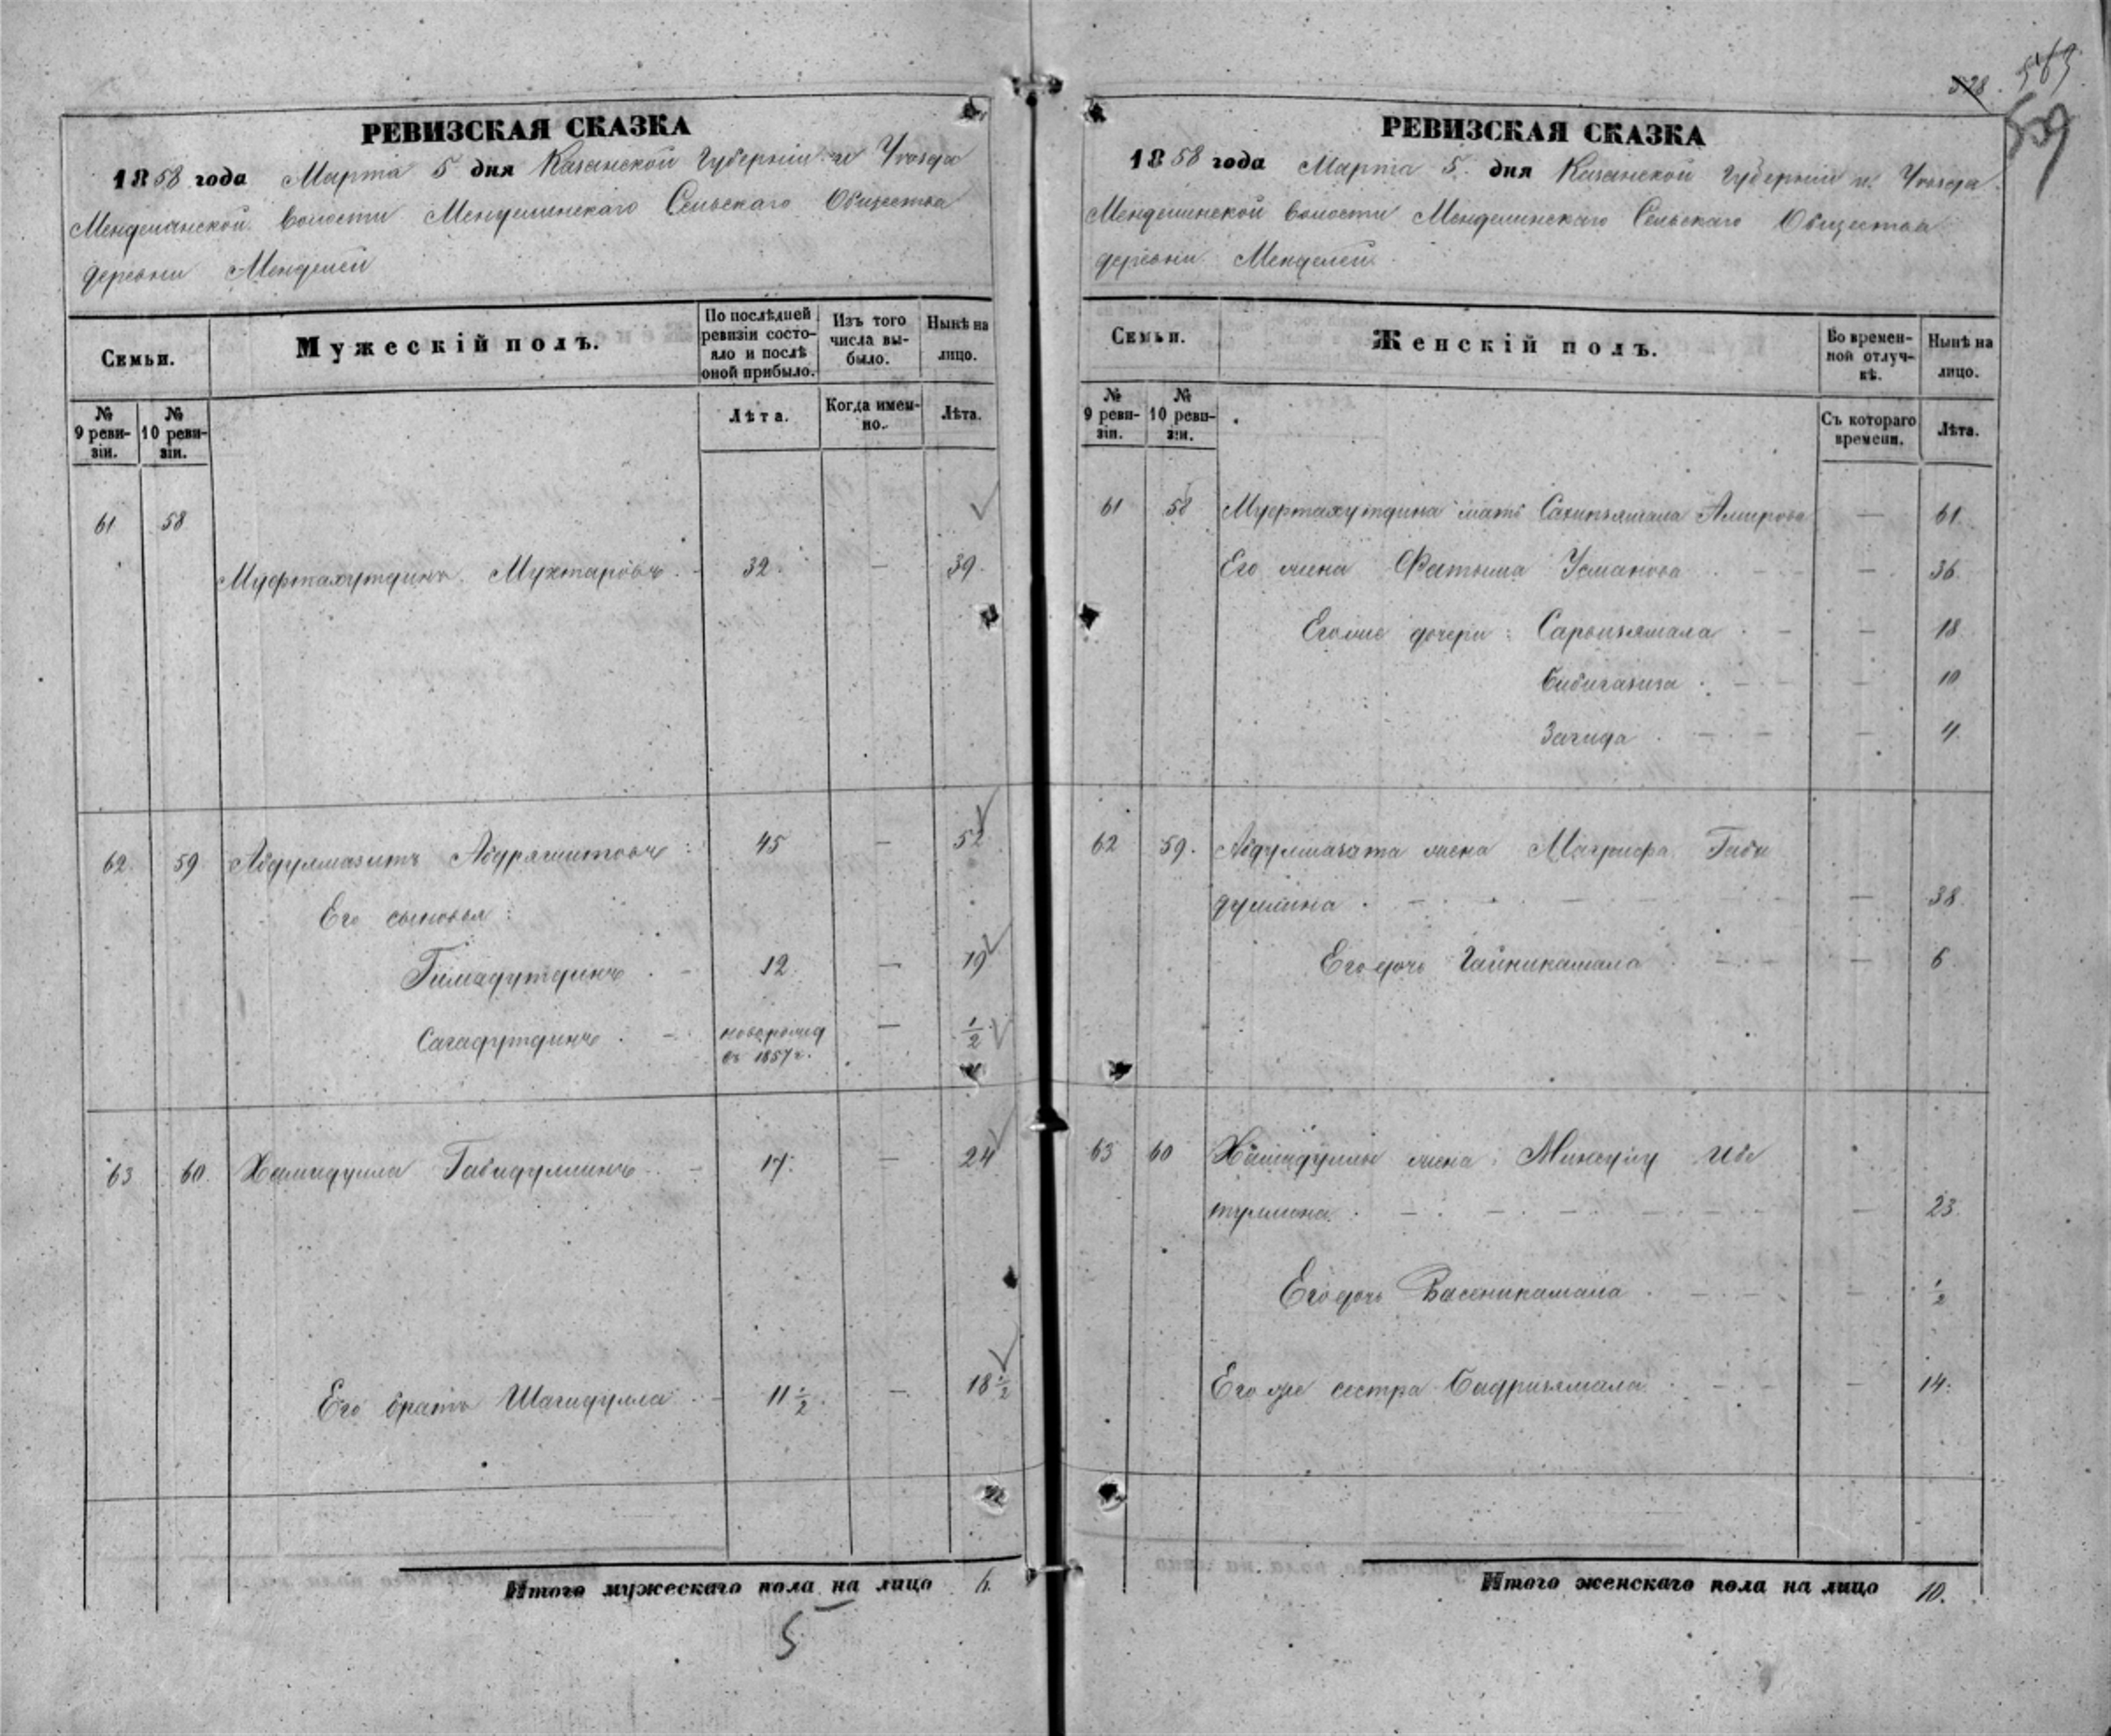 528. 569
569
РЕВИЗСКАЯ СКАЗКА
1858 года Марта 5 дня Казанской Губернии и Уѣзда
Менделинской Волости Менделинскаго Сельскаго Общества
деревни Менделей
Семьи.
Мужескій полъ.
По послѣдней ревизіи состояло и послѣ оной прибыло.
Изъ того числа выбыло.
Нынѣ на лицо.
№ 9 ревизіи.
№ 10 ревизіи.
Лѣта.
Когда именно.
Лѣта.
61 58
Муфтахутдинъ Мухтаровъ 32. — 39.
62. 59 Абдулмазитъ Абдряшитовъ: 45 — 52
Его сыновья:
Гимадутдинъ 12. — 19
Сагадутдинъ новорожд — 1/2
въ 1857 г.
63 60. Хамидулла Габидуллинъ 17. — 24
Его братъ Шагидулла 11 1/2. — 18 1/2
Итого мужескаго пола на лицо 6.
5
РЕВИЗСКАЯ СКАЗКА
1858 года Марта 5 дня Казанской Губерніи и Уѣзда
Менделинской Волости Менделинскаго Сельскаго Общества
деревни Менделей
Семьи.
Женскій полъ.
Во временной отлучкѣ.
Нынѣ на лицо.
№ 9 ревизіи.
№ 10 ревизіи.
Съ котораго времени.
Лѣта.
61 58 Муфтахутдина мать Сахипзямала Амирова — 61.
Его жена Фатыма Усманова — 36.
Его же дочери: Сарвизямала — 18.
Бибигазиза — 10
Загида — 4.
62 59. Абдулмазита жена Магруфа Габи
дуллина — 38.
Его дочь Гайникамала — 6.
63 60 Хамидуллы жена Минсулу
туллина — 23.
Его дочь Васеникамала — 1/2
Его же сестра Бадризямала — 14.
Итого женскаго пола на лицо 10.